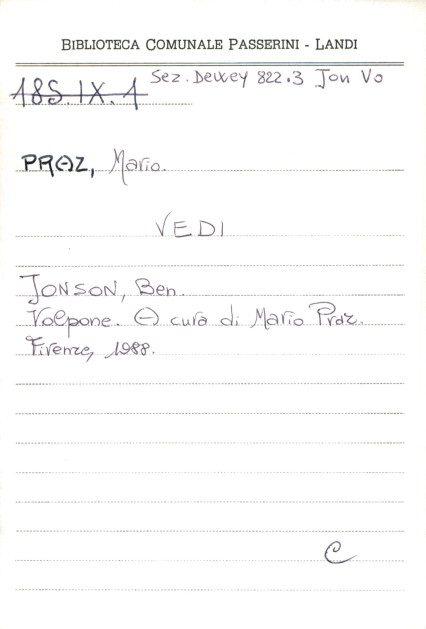 BIBLIOTECA COMUNALE PASSERINI - LANDI
Sez. Dewey 822.3 Jon Vo
185.IX.1
PRAZ, Mario.
VEDI
JONSON, Ben.
Volpone. A cura di Mario Praz.
Firenze, 1988.
C